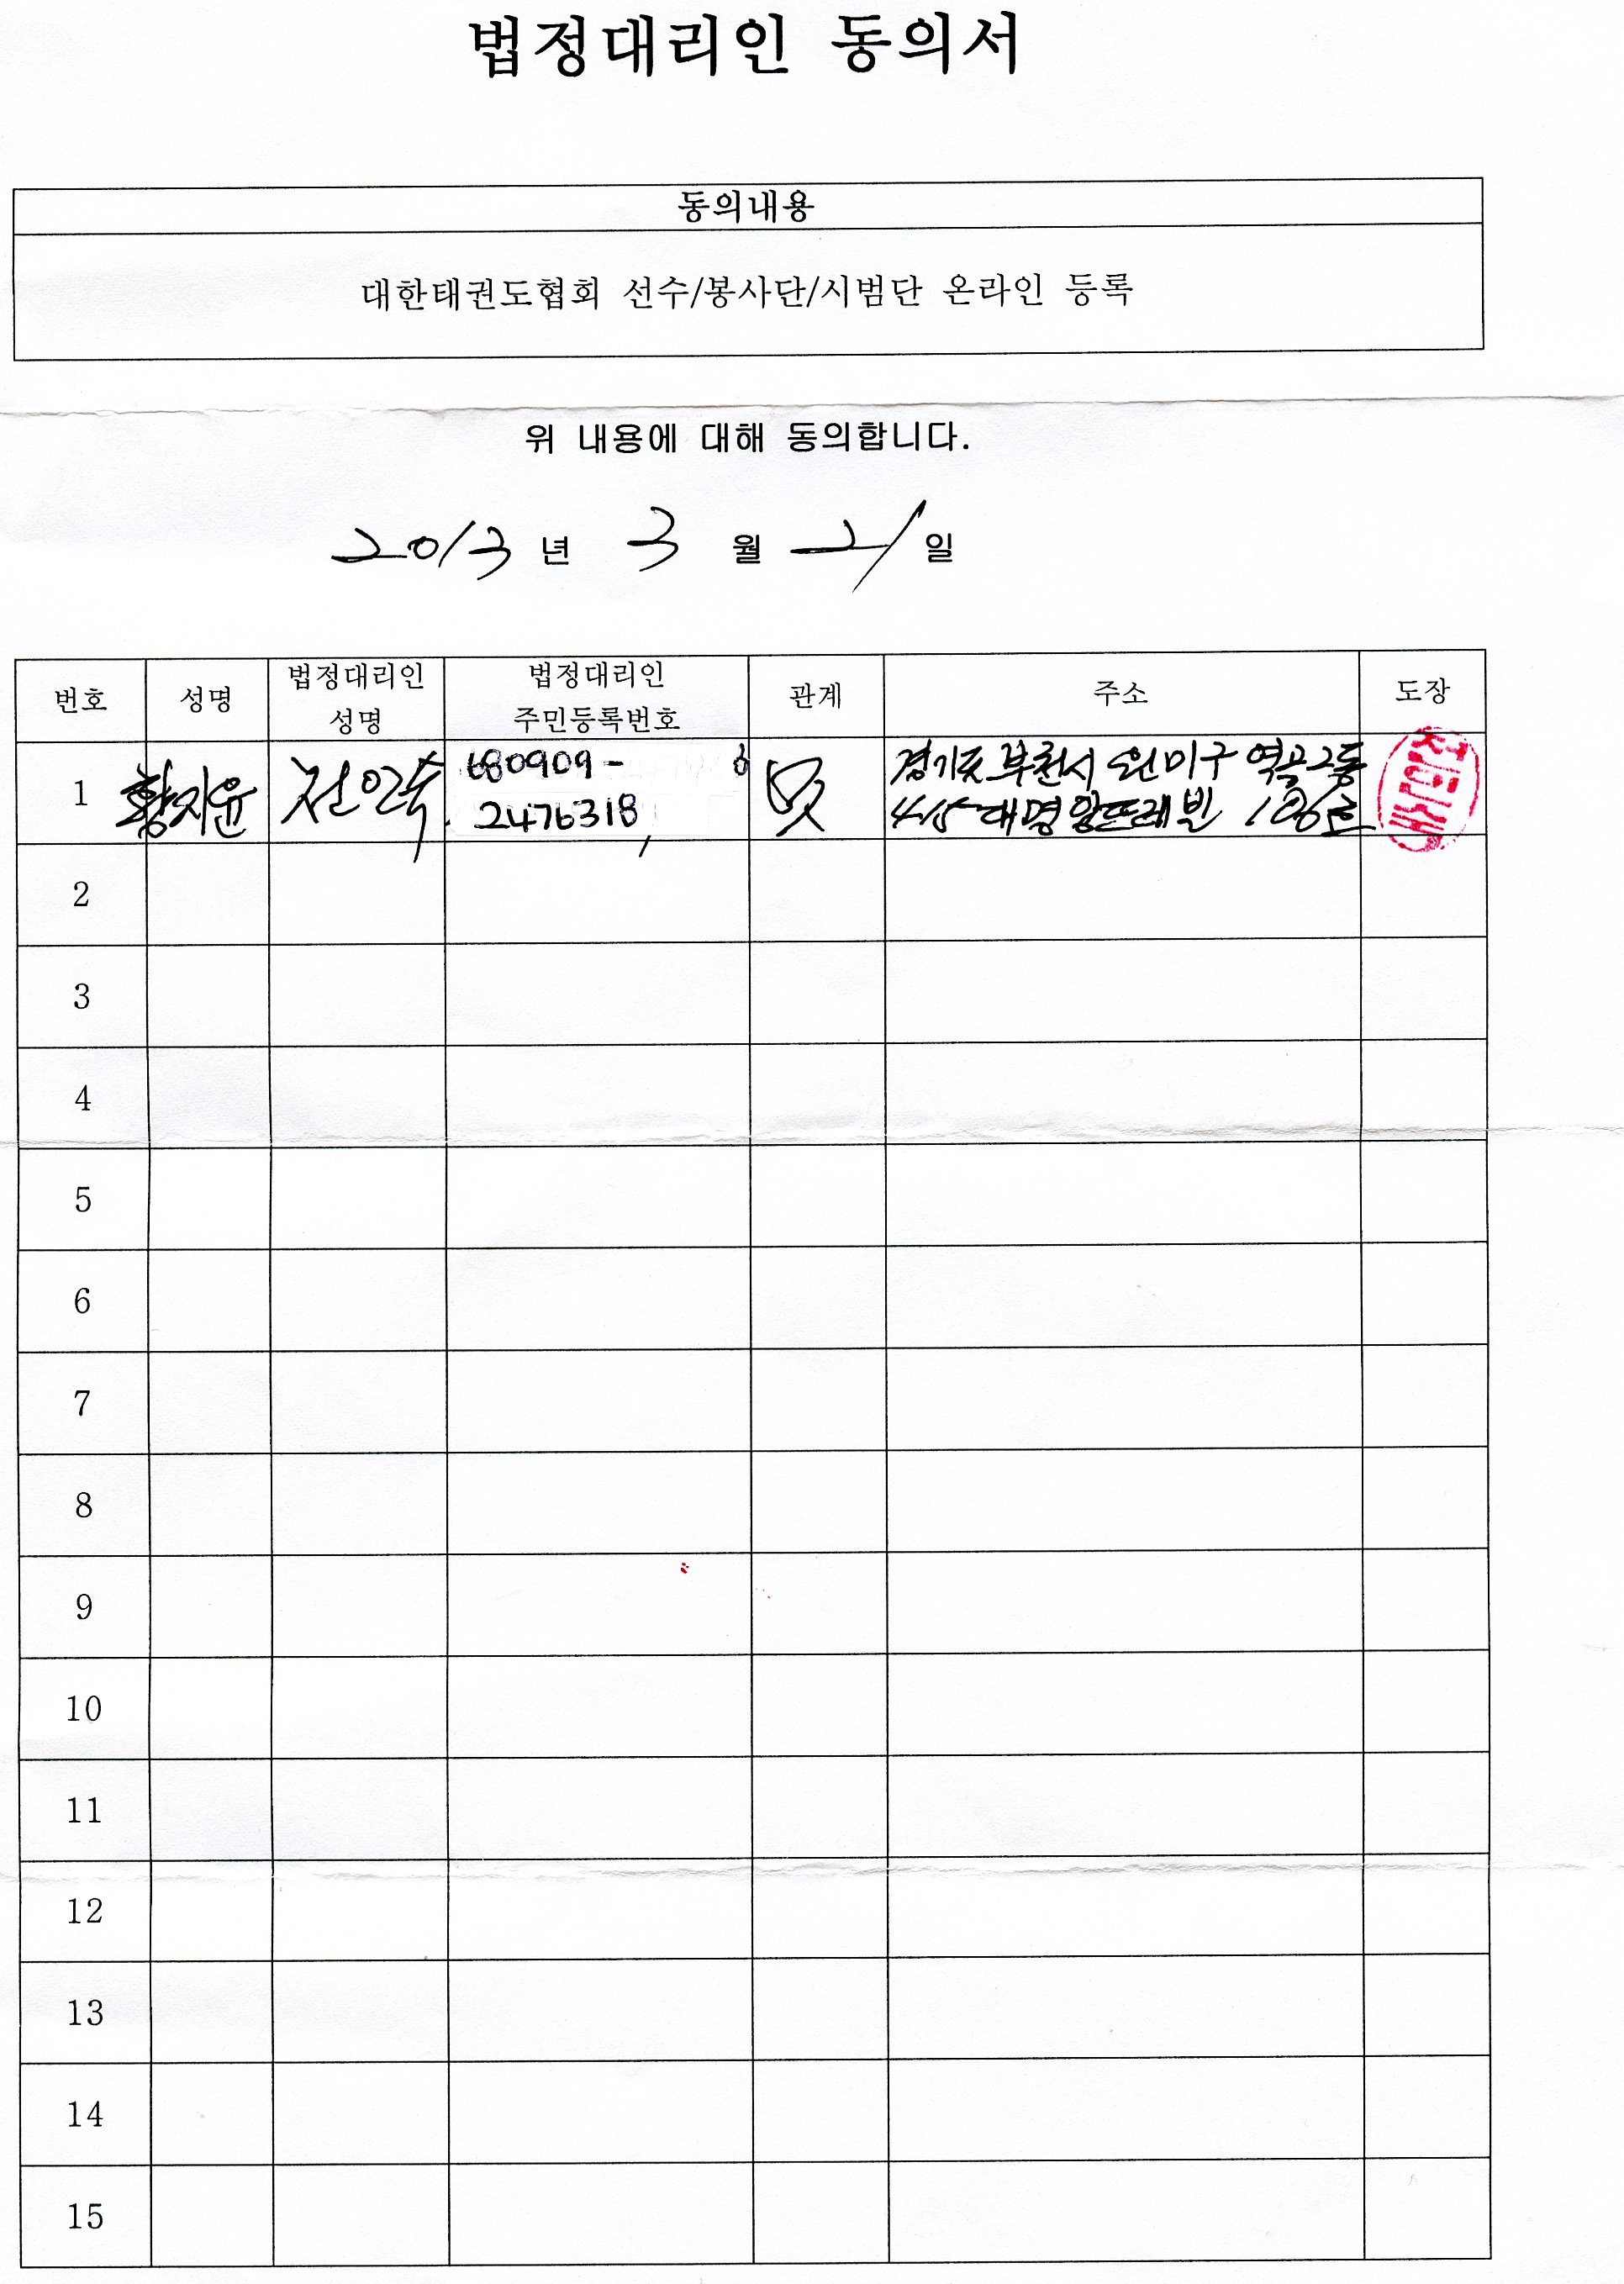 법정대리인 동의서
동의내용
대한태권도협회 선수/봉사단/시범단 온라인 등록
위 내용에 대해 동의합니다.
2013 년 3 월 21 일
번호 성명 법정대리인 성명 법정대리인 주민등록번호 관계 주소 도장
1 황지윤 전인숙 680909- 경기도 부천시 원미구 역곡2동
2476318 모 415 대명앞뜨레빌 호
전인숙
2
3
4
5
6
7
8
9
10
11
12
13
14
15